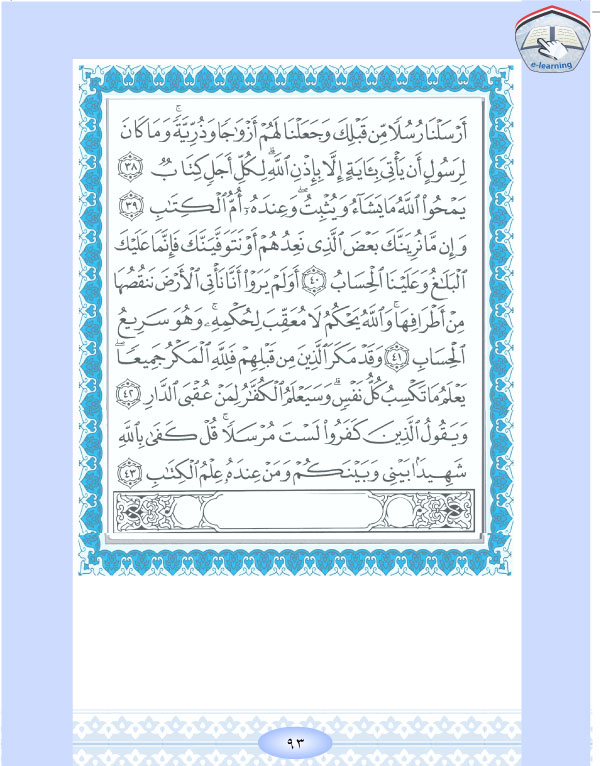 e-learning
أَرْسَلْنَا رُسُلًا مِّن قَبْلِكَ وَجَعَلْنَا لَهُمْ أَزْوَٰجًا وَذُرِّيَّةً ۚ وَمَا كَانَ
لِرَسُولٍ أَن يَأْتِىَ بِـَٔايَةٍ إِلَّا بِإِذْنِ ٱللَّهِ ۗ لِكُلِّ أَجَلٍ كِتَابٌ ٣٨
يَمْحُوا۟ ٱللَّهُ مَا يَشَآءُ وَيُثْبِتُ ۖ وَعِندَهُۥٓ أُمُّ ٱلْكِتَٰبِ ٣٩
وَإِن مَّا نُرِيَنَّكَ بَعْضَ ٱلَّذِى نَعِدُهُمْ أَوْ نَتَوَفَّيَنَّكَ فَإِنَّمَا عَلَيْكَ
ٱلْبَلَٰغُ وَعَلَيْنَا ٱلْحِسَابُ ٤٠ أَوَلَمْ يَرَوْا۟ أَنَّا نَأْتِى ٱلْأَرْضَ نَنقُصُهَا
مِنْ أَطْرَافِهَا ۚ وَٱللَّهُ يَحْكُمُ لَا مُعَقِّبَ لِحُكْمِهِۦ ۚ وَهُوَ سَرِيعُ
ٱلْحِسَابِ ٤١ وَقَدْ مَكَرَ ٱلَّذِينَ مِن قَبْلِهِمْ فَلِلَّهِ ٱلْمَكْرُ جَمِيعًا ۖ
يَعْلَمُ مَا تَكْسِبُ كُلُّ نَفْسٍ ۗ وَسَيَعْلَمُ ٱلْكُفَّٰرُ لِمَنْ عُقْبَى ٱلدَّارِ ٤٢
وَيَقُولُ ٱلَّذِينَ كَفَرُوا۟ لَسْتَ مُرْسَلًا ۚ قُلْ كَفَىٰ بِٱللَّهِ
شَهِيدًۢا بَيْنِى وَبَيْنَكُمْ وَمَنْ عِندَهُۥ عِلْمُ ٱلْكِتَٰبِ ٤٣
٩٣